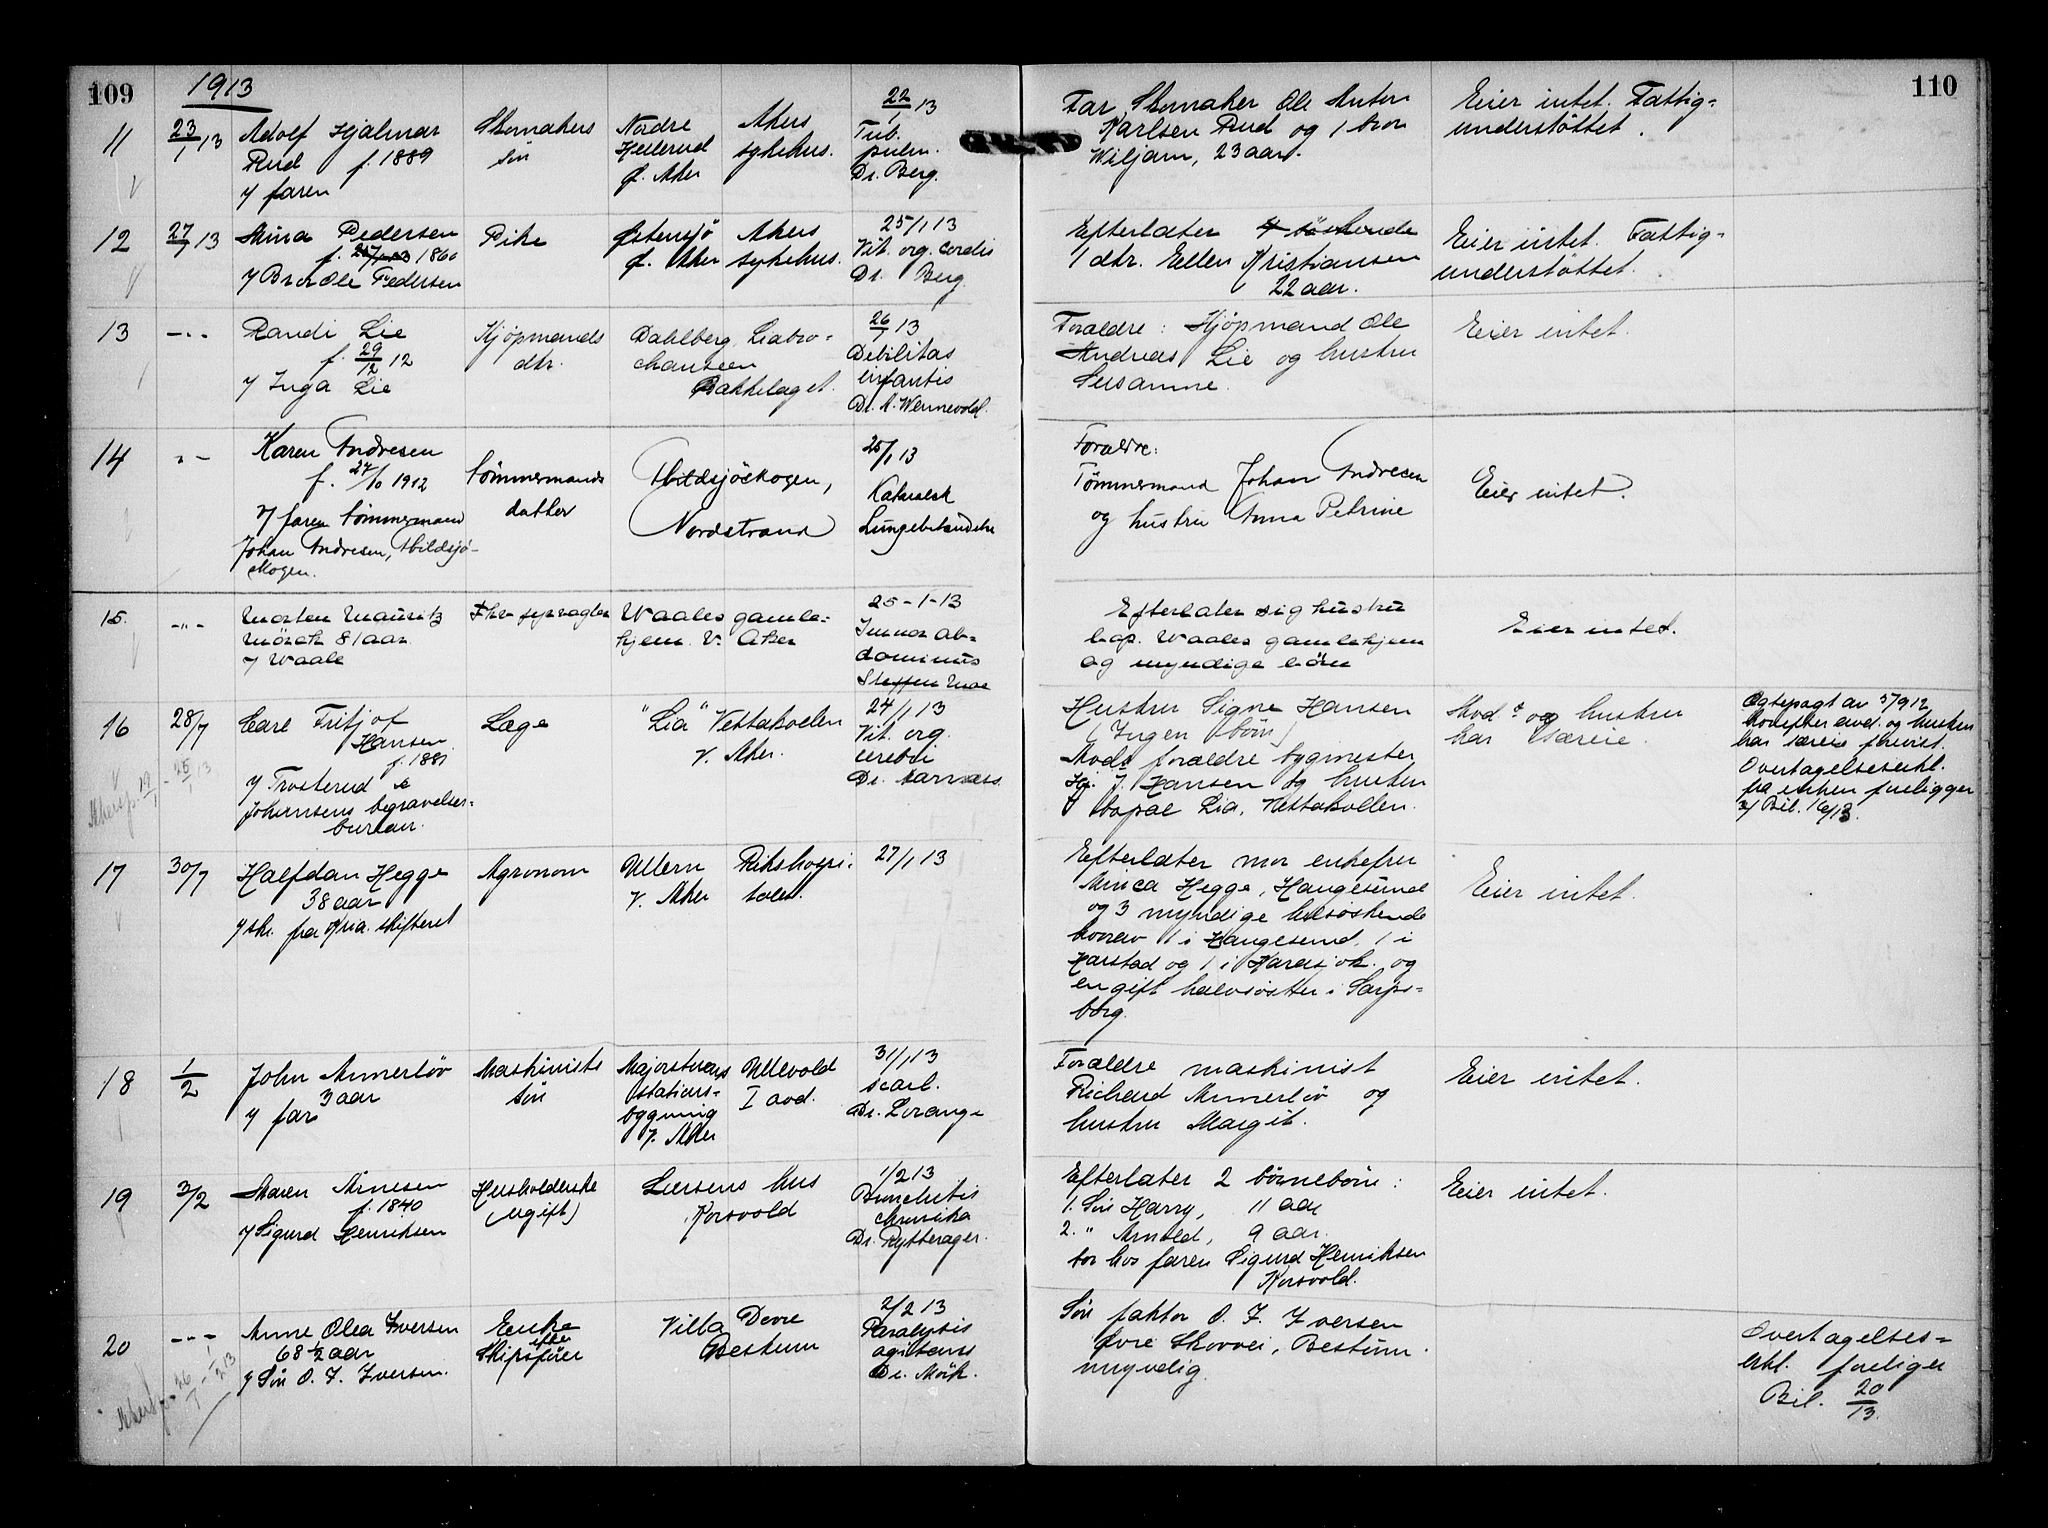 109
1913
110
11
23/1 13
Adolf Hjalmar
Rud f. 1889
v/ faren
Skomakers
sön
Nordre
Ö. Aker
Akers
sykehus.
22/1 13
Tub.
pulm.
Dr. Berg.
Far Skomaker Ole Anton
Karlsen Rud og 1 bror
Wiljam, 23 aar.
Eier intet. Fattig-
understöttet.
12
27/1 13
Mina Pedersen
f. 1860
v/ Bror Ole Pedersen
Pike
Östensjö
Ö. Aker
Akers
sykehus.
25/1 13
Vit. org. cordis
Dr. Berg
Efterlater 4 söskende
1 dtr. Ellen Kristiansen
22 aar.
Eier intet. Fattig-
understöttet.
13
-"-
Randi Lie
f. 29/2 12
v/ Inga Lie
Kjöpmands
dtr.
Dahlberg, Liabro-
chauseen
Bækkelaget.
26/1 13
Debilitas
infantis
Dr. A. Wennevold.
Forældre: Kjöpmand Ole
Andreas Lie og hustru
Susanne.
Eier intet.
14
-"-
Karen Andresen
f. 27/10 1912
v/ faren tömmermand
Johan Andresen, Abildsjö-
skogen.
tömmermands
datter
Abildsjöskogen,
Nordstrand
25/1 13
Kataralsk
Lungebetændelse
Forældre:
Tömmermand Johan Andresen
og hustru Anna Petrine
Eier intet.
15.
-"-
Morten Mauritz
Mörch 81 aar
v/ Waale
Fhv. fyrvagter
Waales gamle-
hjem. V. Aker
25-1-13
Tumor ab-
dominus
Steffen Moe
Efterlater sig hustru
bop. Waales gamlehjem
og myndige börn
Eier intet.
16
28/1
Carl Fritjof
Hansen
f. 1881
v/ Trosterud &
Johansens begravelses-
bureau.
Akersp. 19/1 - 25/1 13
Læge
"Lia" Vettakollen
V. Aker.
24/1 13
Vit. org.
cerebri
Hustru Signe Hansen
(Ingen börn)
Avdes forældre bygmester
J. Hansen og hustru
bopæl Lia, Vettakollen.
Avd. og hustru
har særeie.
Egtepagt av 5/9 12
hvorefter avd. og hustru
har særeie forevist.
Overtagelseserkl.
fra enken foreligger
v/ Bil. 16/13.
17
30/1
Halfdan Hegge
38 aar
v/ skr. fra Kria. skifteret
Agronom
Ullern
V. Aker
Rikshospi-
talet.
27/1 13
Efterlater mor enkefru
Mirica Hegge, Haugesund
og 3 myndige helsöskende
hvorav 1 i Haugesund, 1 i
Harstad og 1 i Karasjok. og
en gift halvsöster i Sarps-
borg.
Eier intet.
18
1/2
John Annerlöv
3 aar
v/ far
Maskinists
sön
Majorstuens
stations-
bygning
V. Aker
Ullevold
I avd.
31/1 13
scarl.
Dr. Lorange
Forældre maskinist
Richard Annerlöv og
hustru Margit.
Eier intet.
19
3/2
Maren Arnesen
f. 1840
v/ Sigurd Henriksen
Husholderske
(ugift)
Larsens hus
Korsvold
1/2 13
Bronchitis
chronika
Dr. Rytterager.
Efterlater 2 börnebörn:
1. Sön Harry, 11 aar
2. " Arnold, 9 aar.
bor hos faren Sigurd Henriksen
Korsvold.
Eier intet.
20
-"-
Anne Olea Iversen
68 1/2 aar
v/ Sön O. J. Iversen.
Akersp. 26/1 - 1/2 13
Enke
efter
Skipsförer
Villa Dovre
Bestum
2/2 13
Paralysis
agitans
Dr. Mörk.
Sön faktor O. J. Iversen
Övre Skovvei, Bestum.
myndig.
Overtagelses-
erkl. foreliger
Bil. 20/13.